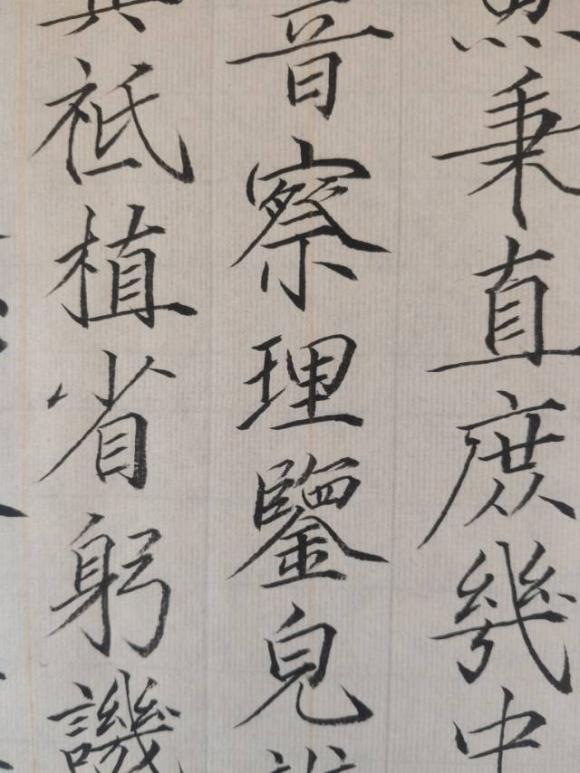 魚秉直庶幾中
音察理鑒皃辨
其祗植省躬譏